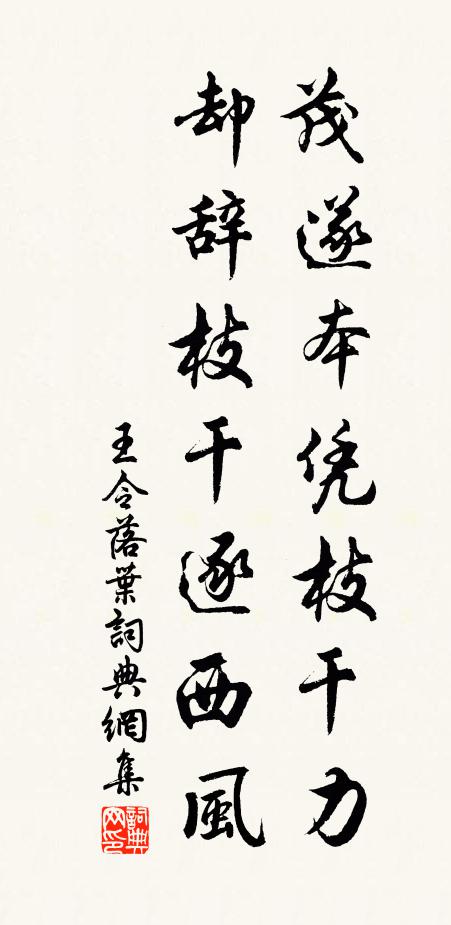 茂遂本凭枝干力
却辞枝干逐西風
王令落葉詞典網集
詞典网印